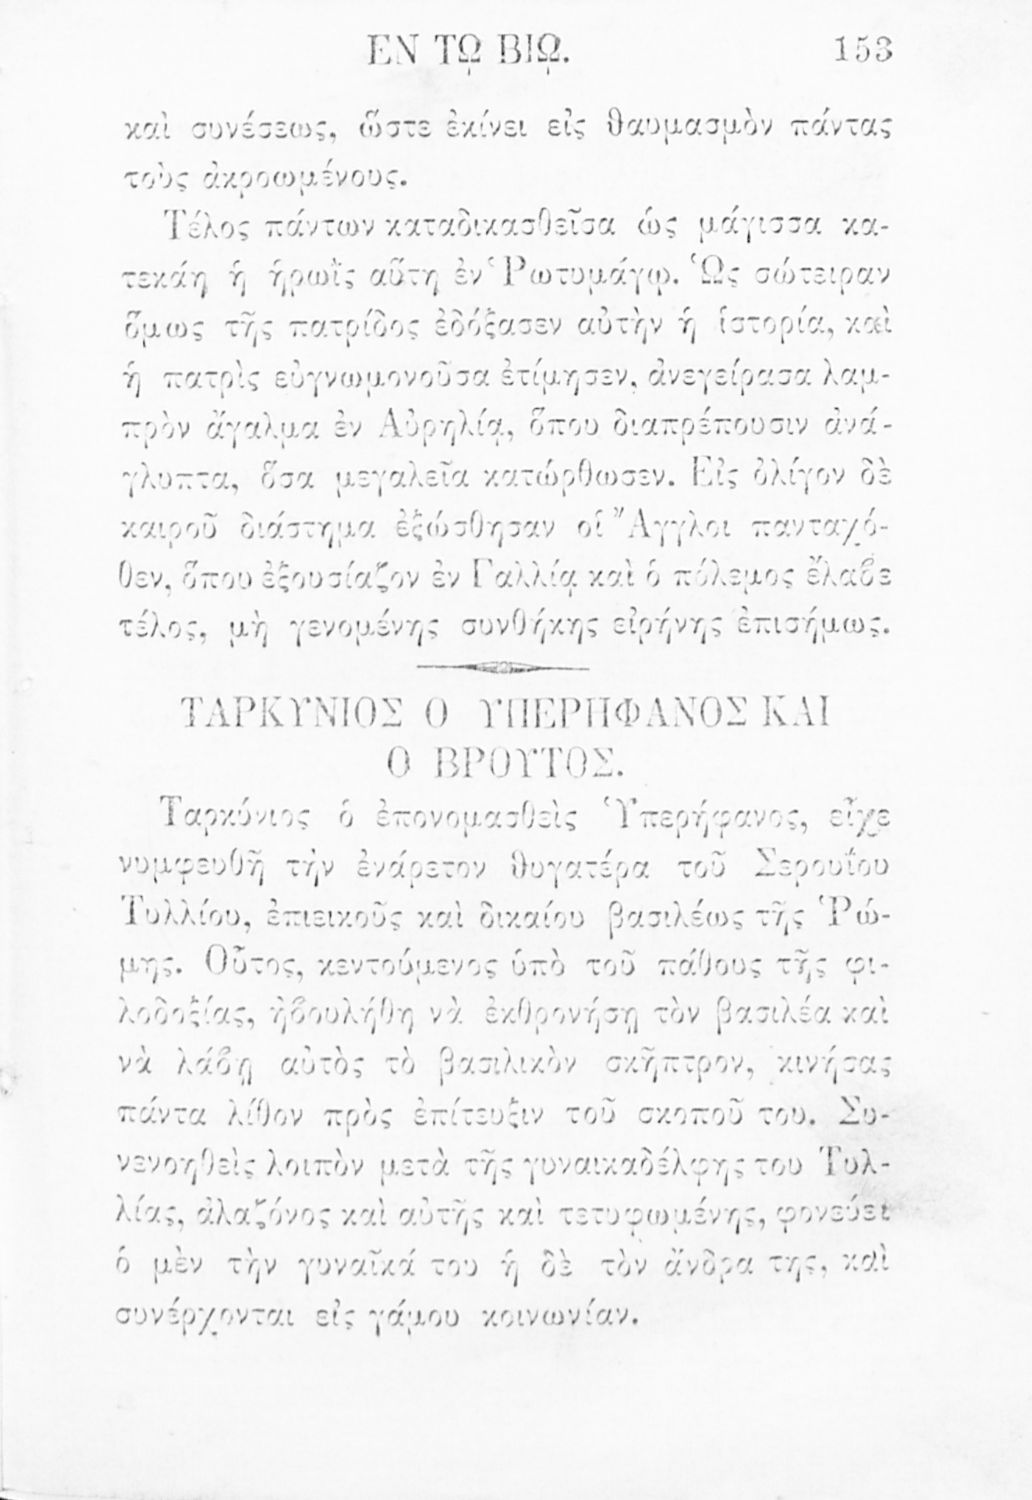 ΕΝ ΤΩ ΒΙΩ. 153
καὶ συνέσεως, ὥστε ἐκίνει εἰς θαυμασμὸν πάντας
τοὺς ἀκροωμένους.
Τέλος πάντων καταδικασθεῖσα ὡς μάγισσα κα-
τεκάη ἡ ἡρωῒς αὕτη ἐν Ῥωτυμάγῳ. Ὡς σώτειραν
ὅμως τῆς πατρίδος ἐδόξασεν αὐτὴν ἡ ἱστορία, καὶ
ἡ πατρὶς εὐγνωμονοῦσα ἐτίμησεν, ἀνεγείρασα λαμ-
πρὸν ἄγαλμα ἐν Αὐρηλίᾳ, ὅπου διαπρέπουσιν ἀνά-
γλυπτα, ὅσα μεγαλεῖα κατώρθωσεν. Εἰς ὀλίγον δὲ
καιροῦ διάστημα ἐξώσθησαν οἱ Ἄγγλοι πανταχό-
θεν, ὅπου ἐξουσίαζον ἐν Γαλλίᾳ καὶ ὁ πόλεμος ἔλαβε
τέλος, μὴ γενομένης συνθήκης εἰρήνης ἐπισήμως.
ΤΑΡΚΥΝΙΟΣ Ο ΥΠΕΡΗΦΑΝΟΣ ΚΑΙ
Ο ΒΡΟΥΤΟΣ.
Ταρκύνιος ὁ ἐπονομασθεὶς Ὑπερήφανος, εἶχε
νυμφευθῆ τὴν ἐνάρετον θυγατέρα τοῦ Σερουΐου
Τυλλίου, ἐπιεικοῦς καὶ δικαίου βασιλέως τῆς Ῥώ-
μης. Οὗτος, κεντούμενος ὑπὸ τοῦ πάθους τῆς φι-
λοδοξίας, ἠβουλήθη νὰ ἐκθρονήσῃ τὸν βασιλέα καὶ
νὰ λάβῃ αὐτὸς τὸ βασιλικὸν σκῆπτρον, κινήσας
πάντα λίθον πρὸς ἐπίτευξιν τοῦ σκοποῦ του. Συ-
νενοηθεὶς λοιπὸν μετὰ τῆς γυναικαδέλφης του Τυλ-
λίας, ἀλαζόνος καὶ αὐτῆς καὶ τετυφωμένης, φονεύει
ὁ μὲν τὴν γυναῖκά του ἡ δὲ τὸν ἄνδρα της, καὶ
συνέρχονται εἰς γάμου κοινωνίαν.